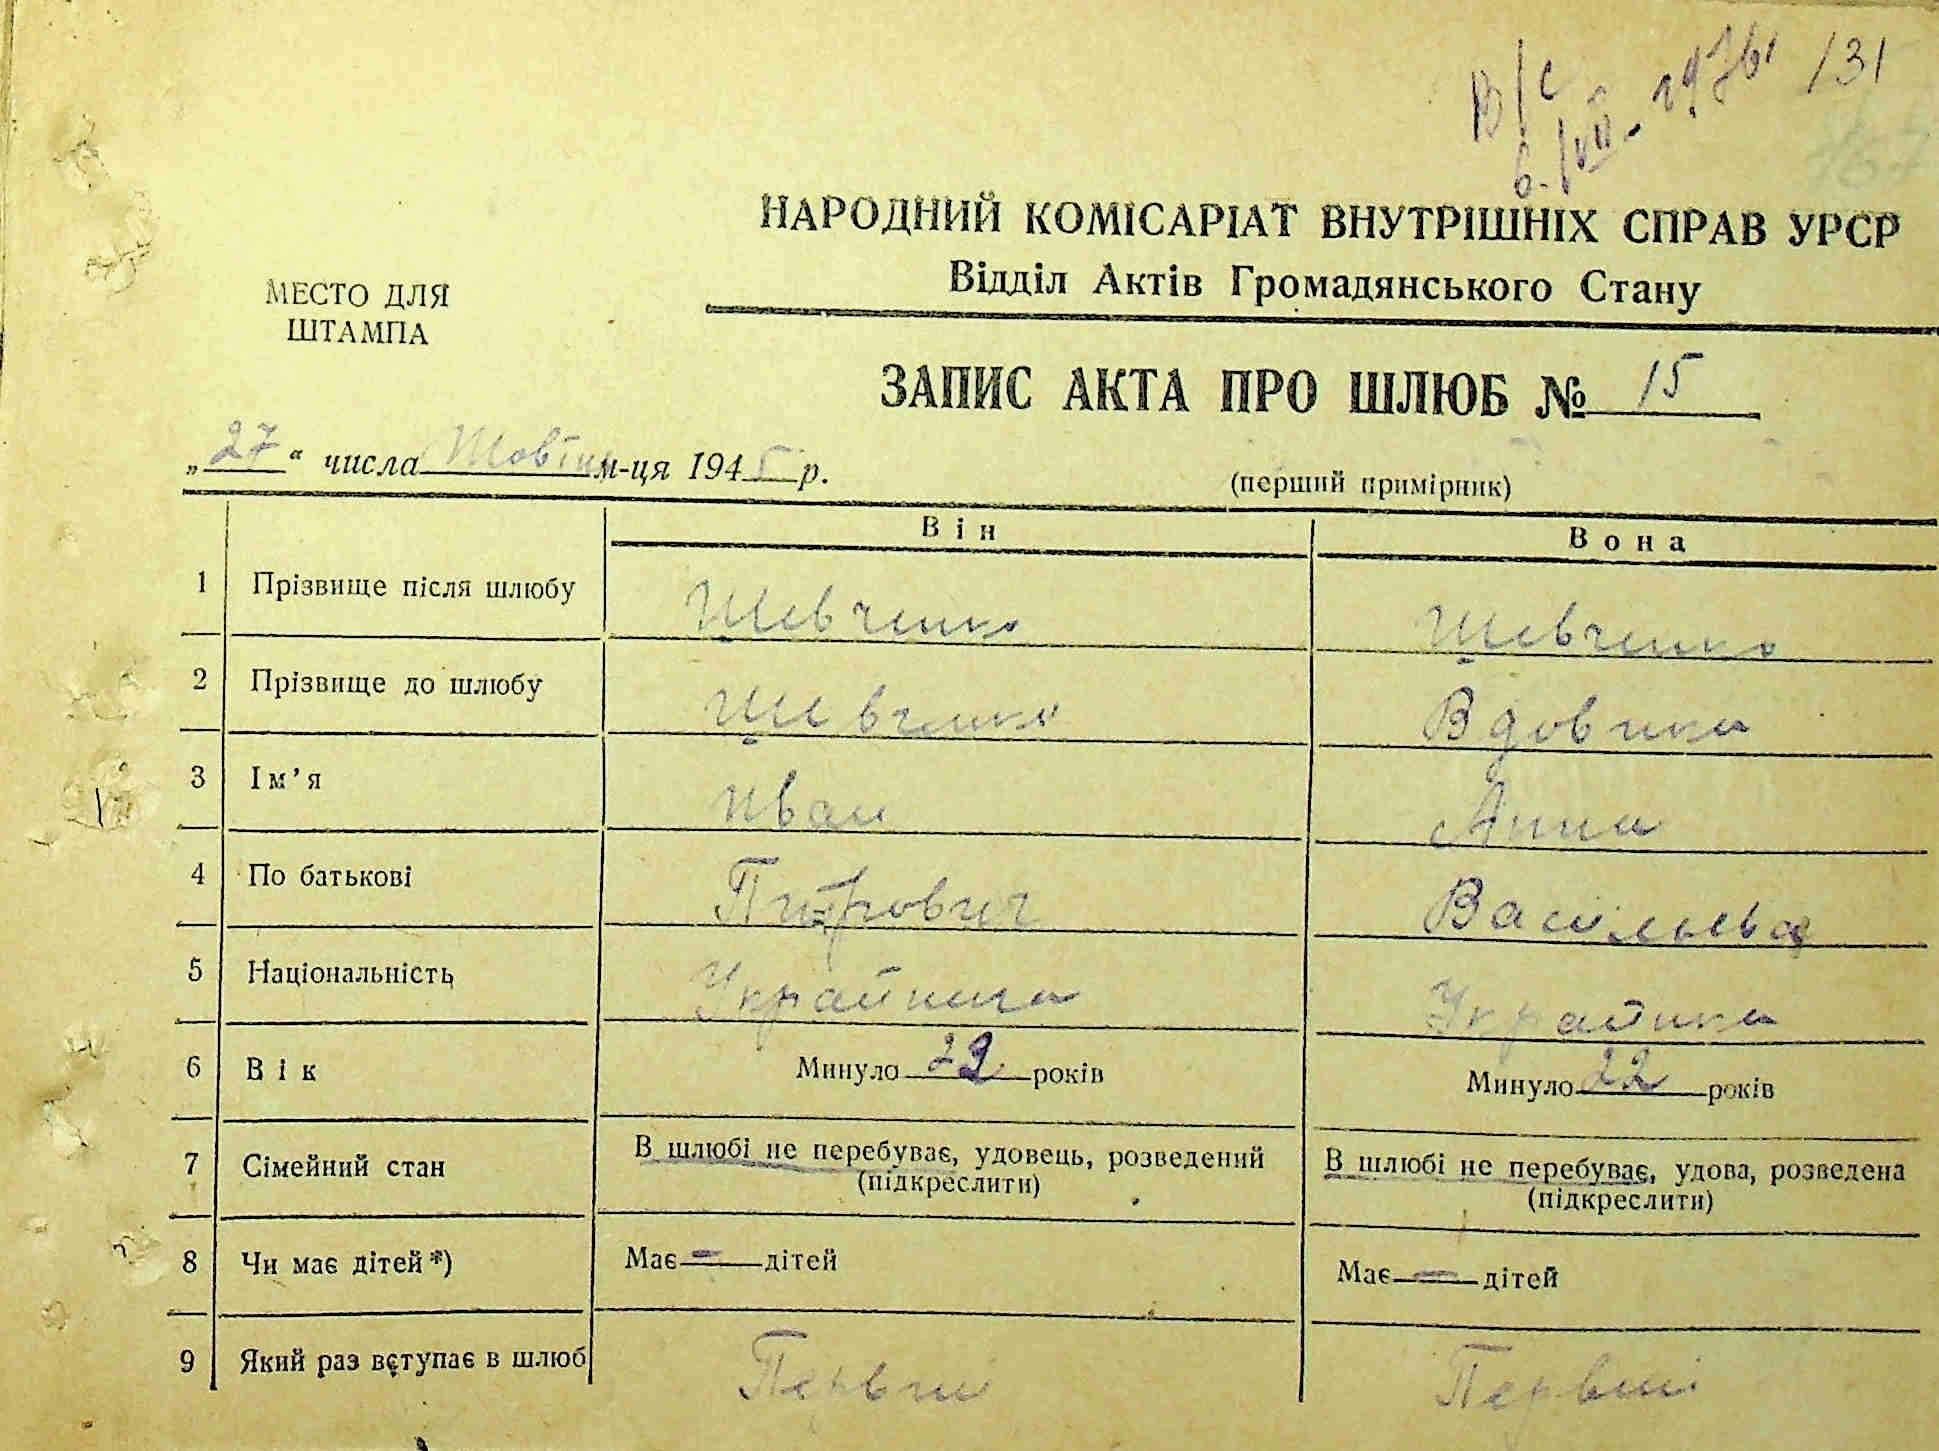 В/с 131
6/VII-1976
НАРОДНИЙ КОМІСАРІАТ ВНУТРІШНІХ СПРАВ УРСР
Відділ Актів Громадянського Стану
МЕСТО ДЛЯ
ШТАМПА
ЗАПИС АКТА ПРО ШЛЮБ № 15
„27“ числа Жовтня м-ця 1945 р.
(перший примірник)
Він Вона
1 Прізвище після шлюбу Шевченко Шевченко
2 Прізвище до шлюбу Шевченко Вдовика
3 Ім’я Иван Анна
4 По батькові Питрович Васильевна
5 Національність Украйинец Украйинка
6 Вік Минуло 22 років Минуло 22 років
7 Сімейний стан В шлюбі не перебуває, удовець, розведений В шлюбі не перебуває, удова, розведена
(підкреслити) (підкреслити)
8 Чи має дітей*) Має — дітей Має — дітей
9 Який раз вступає в шлюб Первий Первий